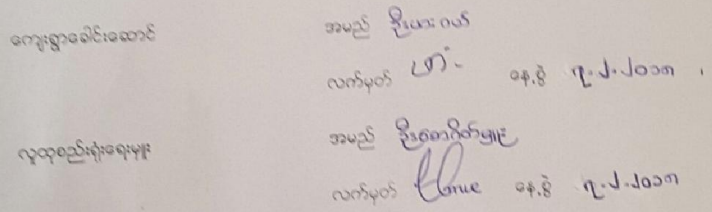 ကျေးရွာခေါင်းဆောင် အမည် ဦးယားဝယ်
လက်မှတ် ယာ နေ့စွဲ ၇.၂.၂၀၁၈
လူထုစည်းရုံးရေးမှူး အမည် ဦးစောဂိတ်မူး
လက်မှတ် နေ့စွဲ ၇.၂.၂၀၁၈